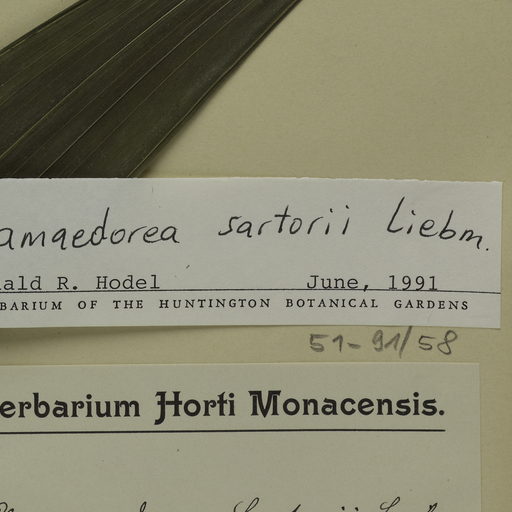 amaedorea sartorii Liebm.
ald R. Hodel June, 1991
BARIUM OF THE HUNTINGTON BOTANICAL GARDENS
51-91/58
erbarium Horti Monacensis.